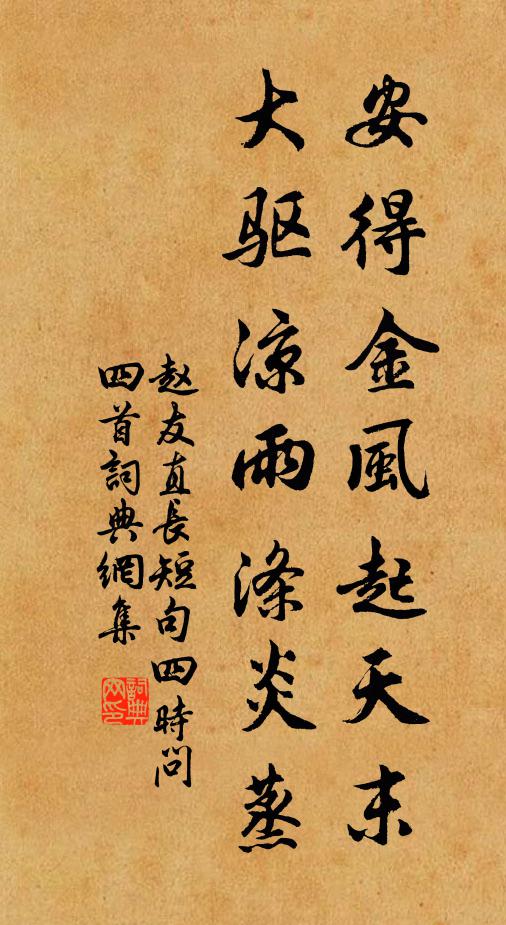 安得金風起天末
大驱凉雨涤炎蒸
赵友直長短句四時问
四首詞典網集
詞典
网印